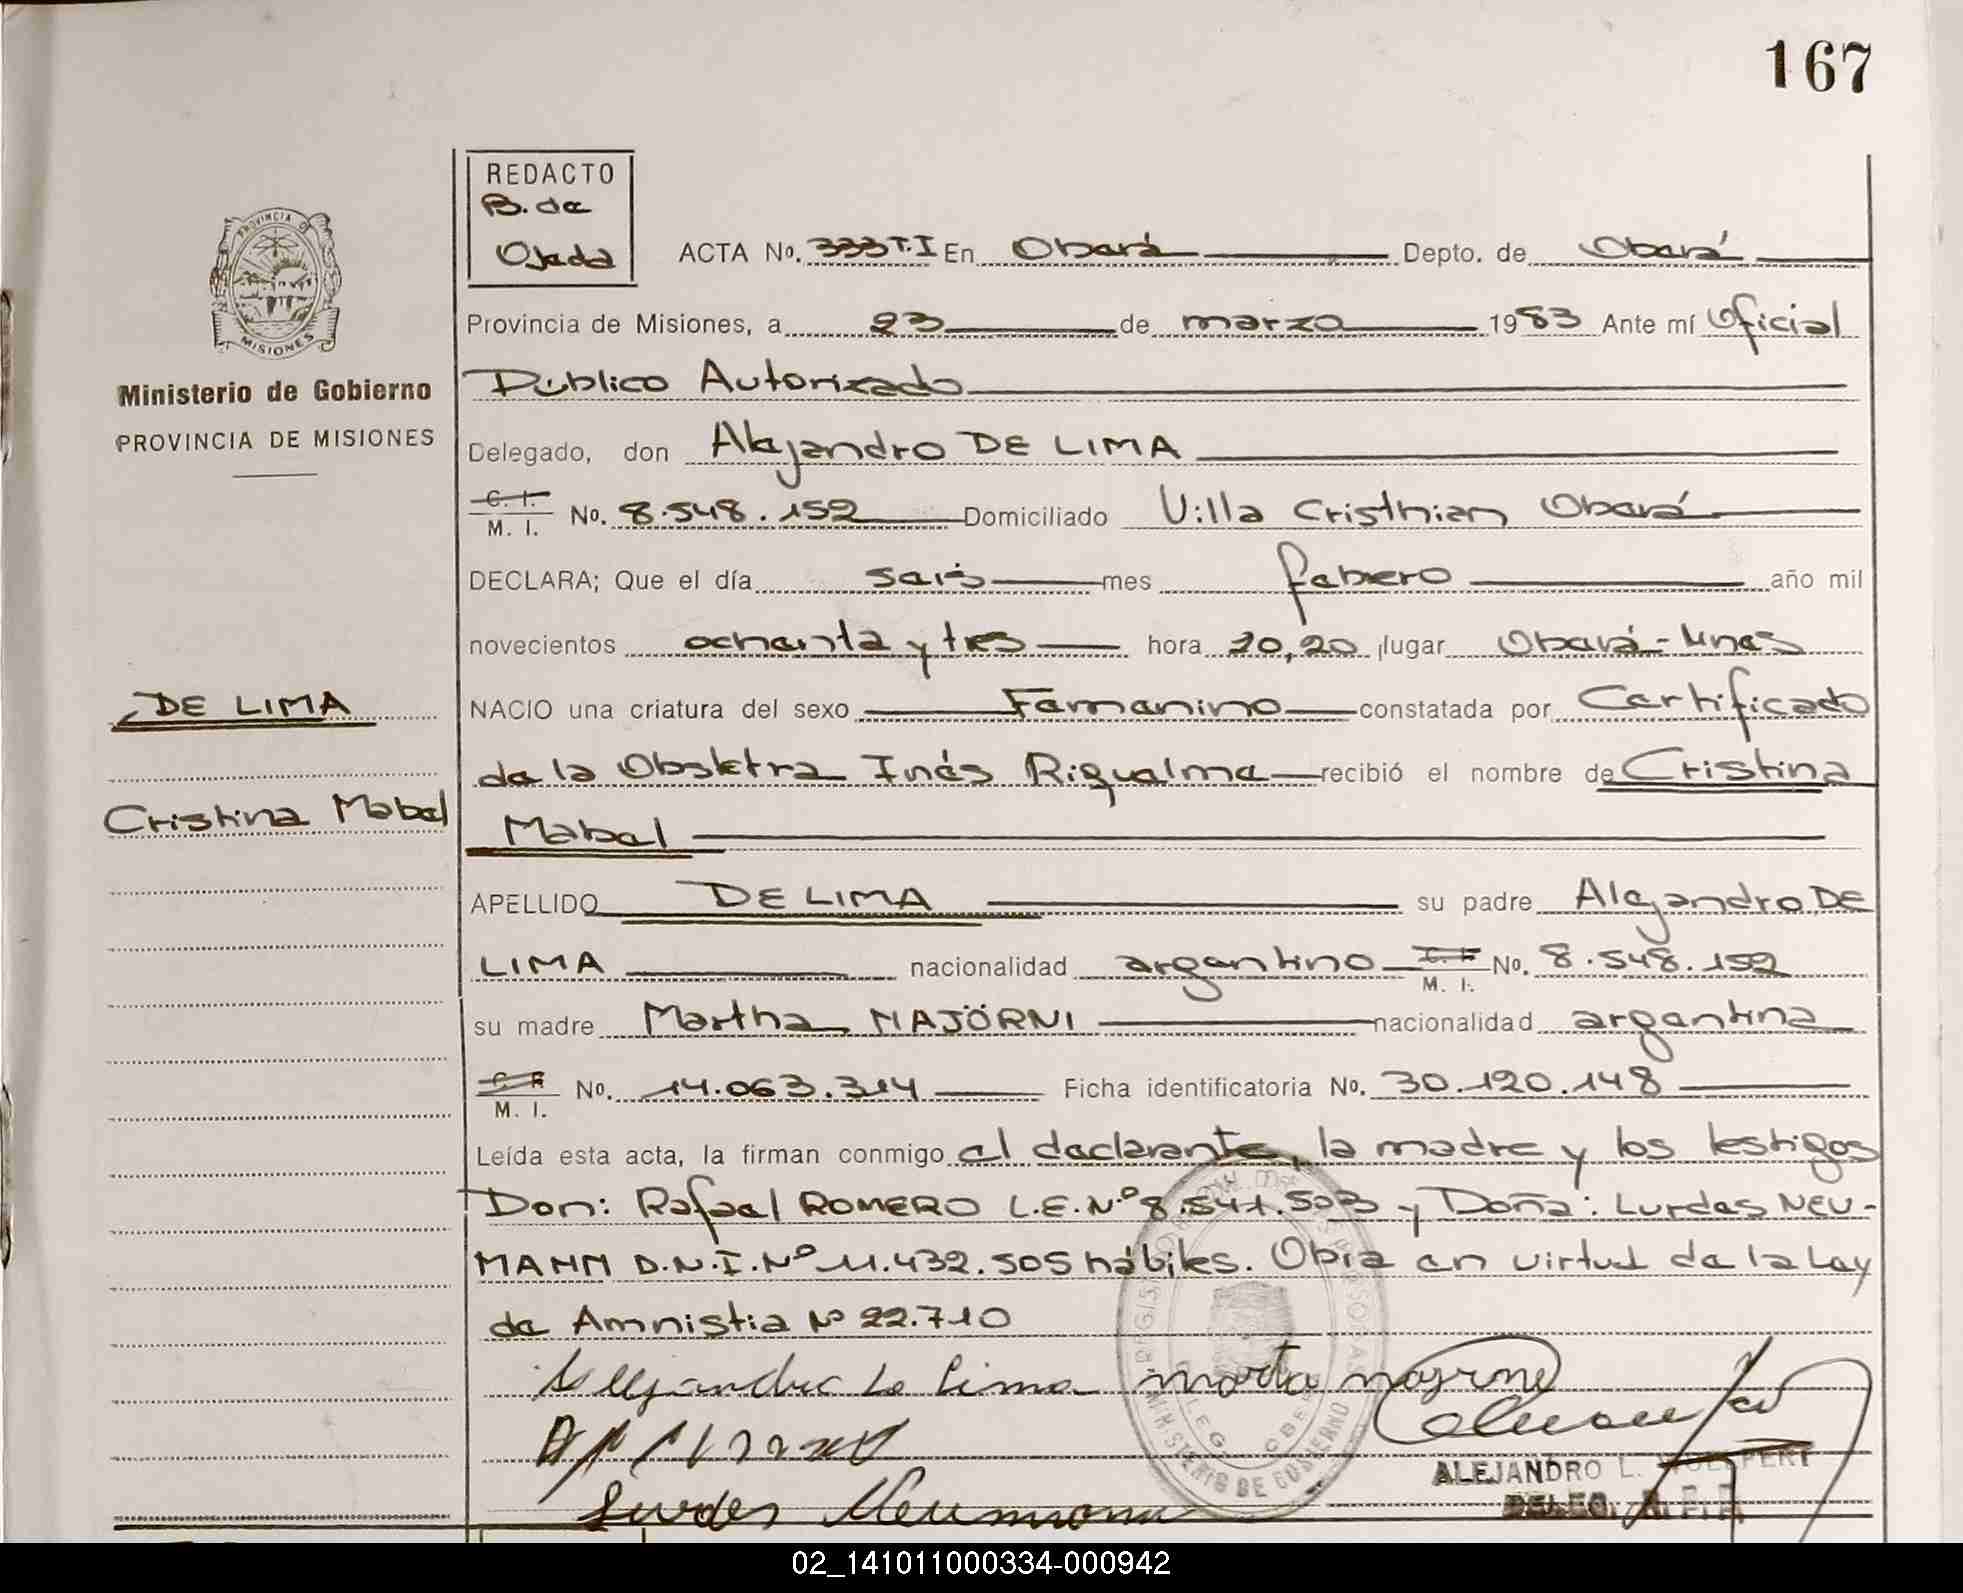 167
REDACTO
B. de
Ojeda
ACTA No. 333 T.I En Oberá Depto. de Oberá
PROVINCIA D
MISIONES
Provincia de Misiones, a 23 de marzo 1983 Ante mí Oficial
Ministerio de Gobierno
Público Autorizado
PROVINCIA DE MISIONES
Delegado, don Alejandro DE LIMA
C. I.
M. I. No. 8.548.152 Domiciliado Villa Cristhian Oberá
DECLARA; Que el día seis mes febrero año mil
novecientos ochenta y tres hora 20,20 lugar Oberá-Mnes
DE LIMA
NACIO una criatura del sexo Femenino constatada por Certificado
de la Obstetra Inés Riquelme recibió el nombre de Cristina
Cristina Mabel
Mabel
APELLIDO DE LIMA su padre Alejandro DE
LIMA nacionalidad argentino M. I. No. 8.548.152
su madre Martha MAJÖRNI nacionalidad argentina
M. I. No. 14.063.314 Ficha identificatoria No. 30.120.148
Leída esta acta, la firman conmigo el declarante, la madre y los testigos
Don: Rafael ROMERO L.E.Nº 8.541.503 y Doña: Lurdes NEU-
MANN D.N.I.Nº 11.432.505 hábiles. Obra en virtud de la Ley
de Amnistia Nº 22.710
Alejandro de Lima Marta
Lurdes Neumann
MINISTERIO DE GOBIERNO
ALEJANDRO L. WOLLPERT
DELEG. R. P. P.
02_141011000334-000942